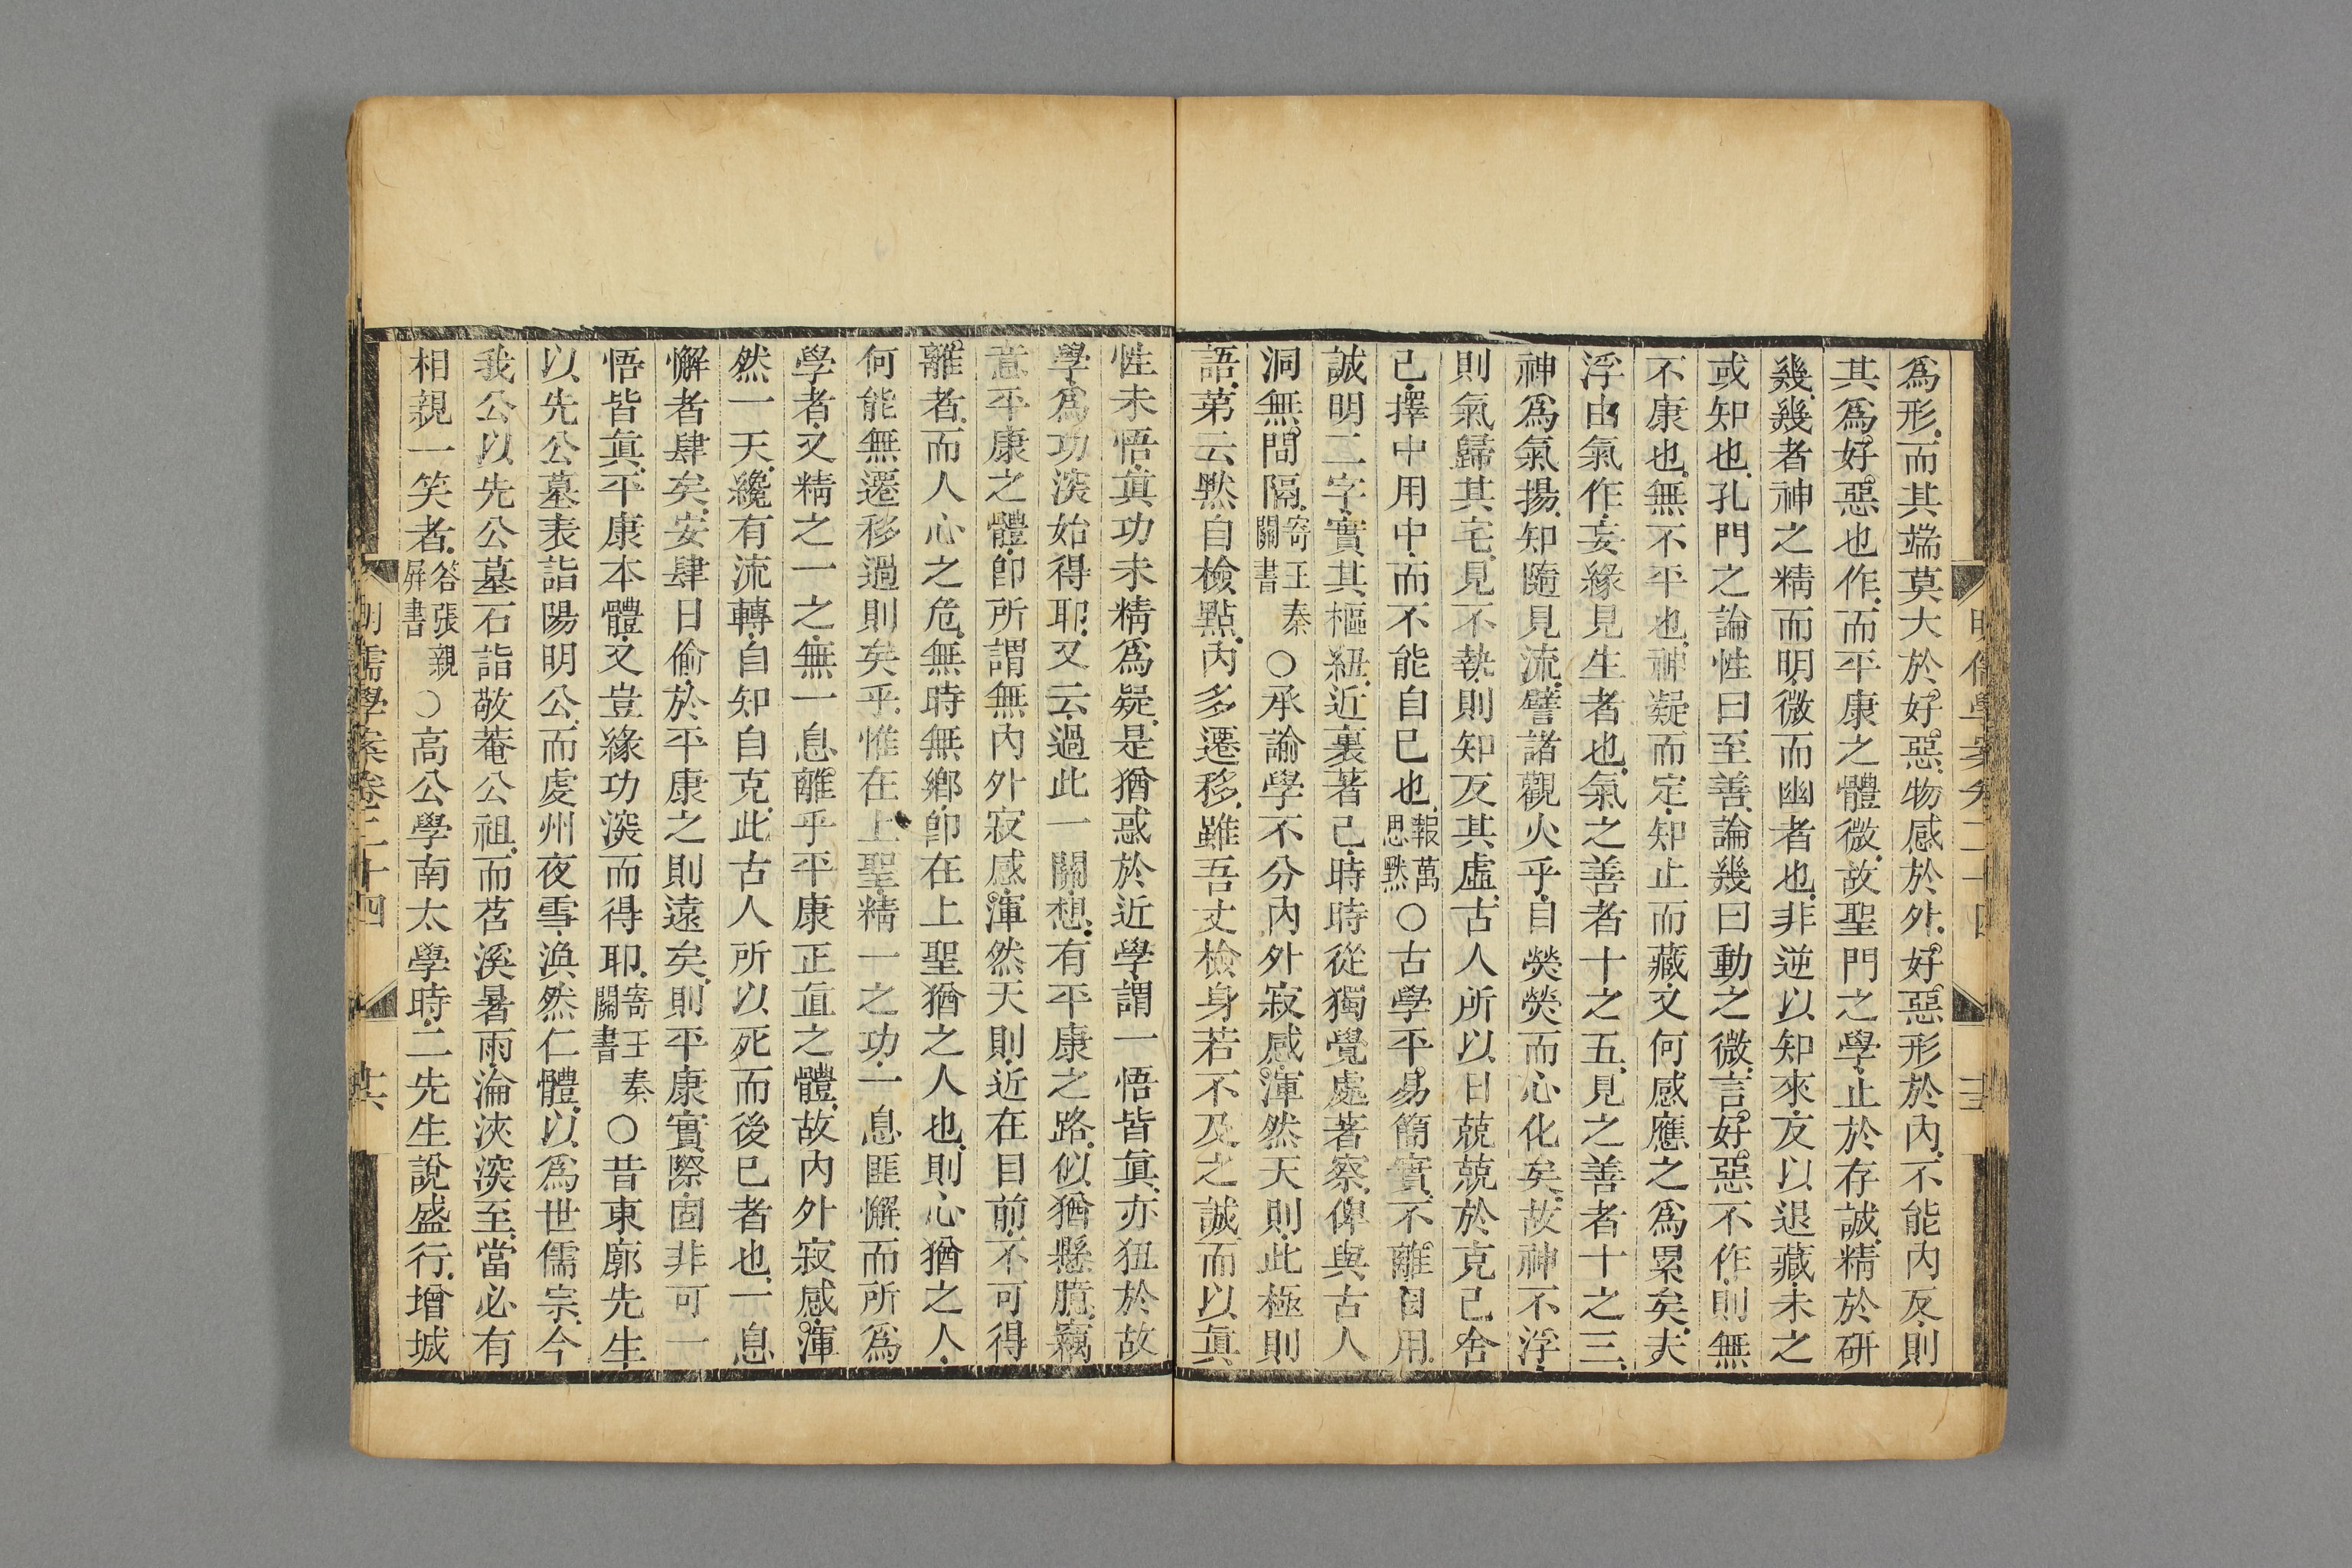 爲形而其端莫大於好惡物感於外好惡形於內不能內反則
其爲好惡也作而平康之體微故聖門之學止於存誠精於研
幾幾者神之精而明微而幽者也非逆以知來反以退藏未之
或知也孔門之論性曰至善論幾曰動之微言好惡不作則無
不康也無不平也神凝而定知止而藏又何感應之爲累矣夫
浮由氣作妄緣見生者也氣之善者十之五見之善者十之三
神爲氣揚知隨見流譬諸觀火乎自熒熒而心化矣故神不浮
則氣歸其宅見不執則知反其虛古人所以日兢兢於克己舍
己擇中用中而不能自已也報萬思默○古學平易簡實不離自用
誠明二字實其樞紐近裏著己時時從獨覺處著察俾與古人
洞無間隔寄王秦關書○承諭學不分內外寂感渾然天則此極則
語第云默自檢點內多遷移雖吾丈檢身若不及之誠而以真
性未悟真功未精爲疑是猶惑於近學謂一悟皆真亦狃於故
學爲功深始得耶又云過此一關想有平康之路似猶懸臆竊
意平康之體卽所謂無內外寂感渾然天則近在目前不可得
離者而人心之危無時無鄉卽在上聖猶之人也則心猶之人
何能無遷移過則矣乎惟在上聖精一之功一息匪懈而所爲
學者又精之一之無一息離乎平康正直之體故內外寂感渾
然一天纔有流轉自知自克此古人所以死而後已者也一息
懈者肆矣安肆日偷於平康之則遠矣則平康實際固非可一
悟皆真平康本體又豈緣功深而得耶寄王秦關書○昔東廓先生
以先公墓表詣陽明公而虔州夜雪渙然仁體以爲世儒宗今
我公以先公墓石詣敬菴公祖而苕溪暑雨淪浹深至當必有
相親一笑者答張親屏書○高公學南太學時二先生說盛行增城
明儒學案卷二十四
廿六